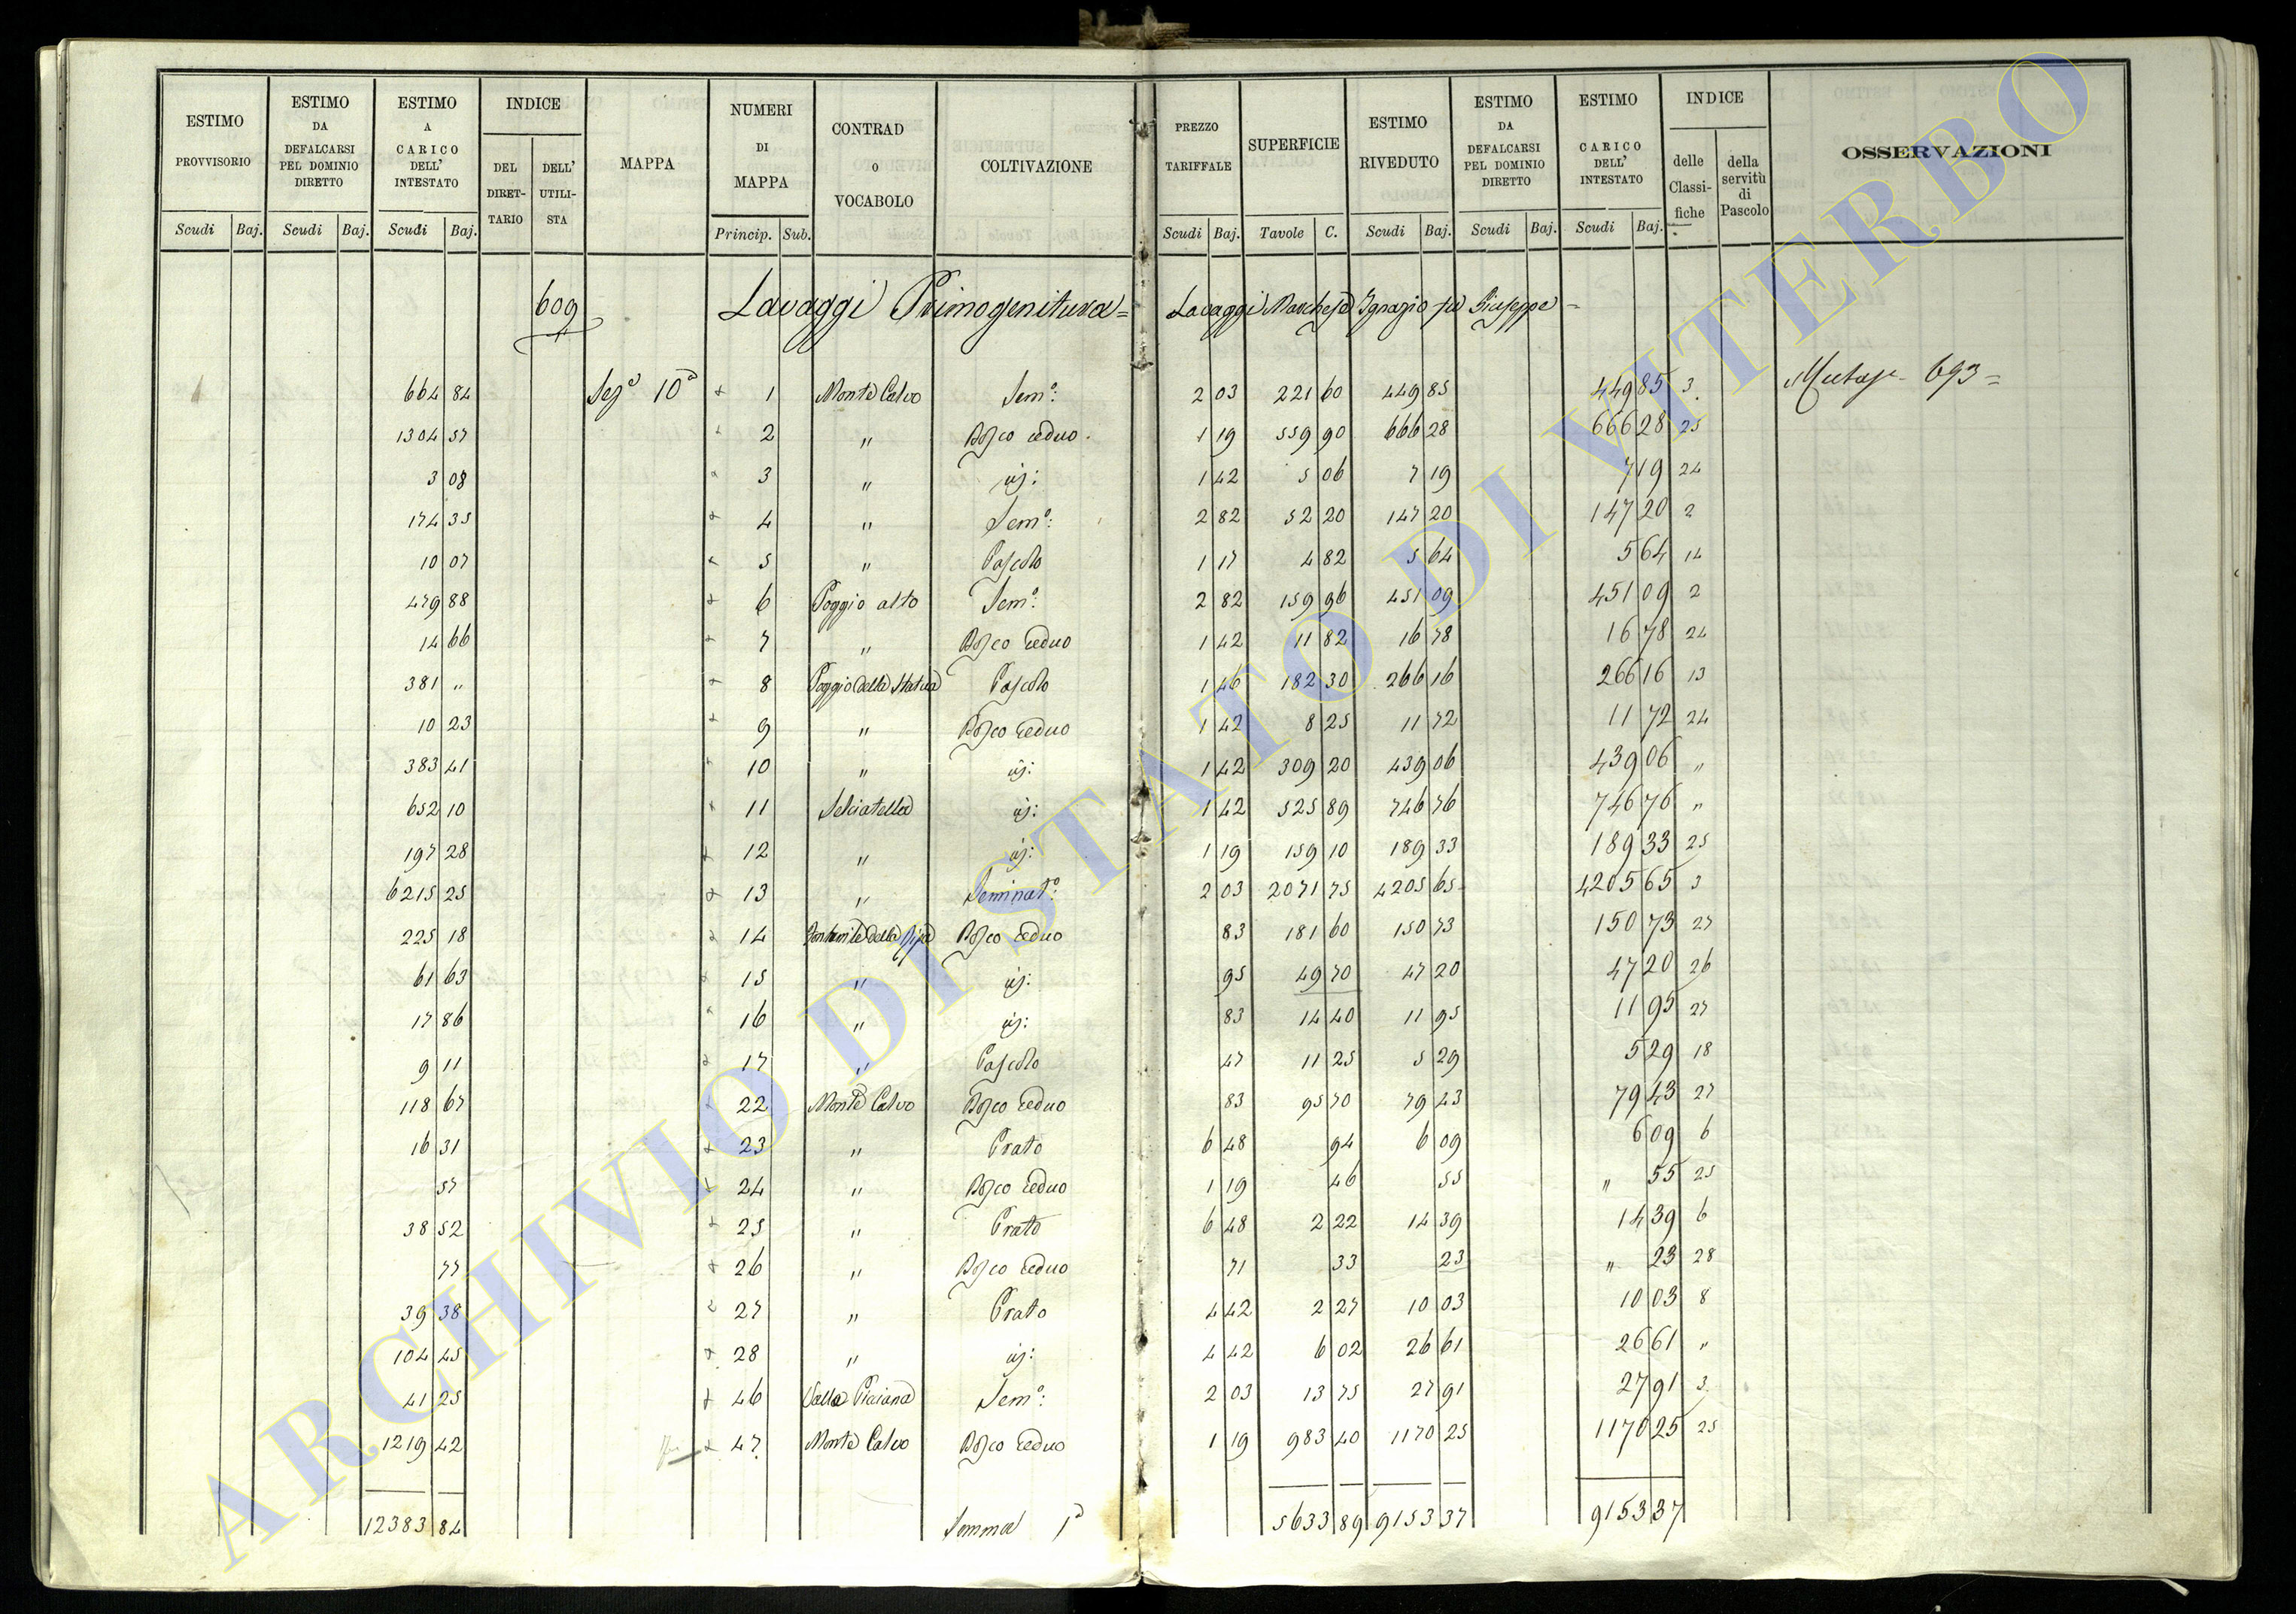 ESTIMO PROVVISORIO | ESTIMO DA DEFALCARSI PEL DOMINIO DIRETTO | ESTIMO A CARICO DELL' INTESTATO | INDICE | MAPPA | NUMERI DI MAPPA | CONTRAD o VOCABOLO | COLTIVAZIONE | PREZZO TARIFFALE | SUPERFICIE | ESTIMO RIVEDUTO | ESTIMO DA DEFALCARSI PEL DOMINIO DIRETTO | ESTIMO A CARICO DELL' INTESTATO | INDICE | OSSERVAZIONI
DEL DIRET-TARIO | DELL' UTILI-STA | delle Classi-fiche | della servitù di Pascolo
Scudi Baj. | Scudi Baj. | Scudi Baj. | Princip. Sub. | Scudi Baj. | Tavole C. | Scudi Baj. | Scudi Baj. | Scudi Baj.
609 Lavaggi Primogenitura = Lavaggi Marchese Ignazio fu Giuseppe =
664 84 | 10 | 1 | Monte Calvo | Sem.º: | 2 03 | 221 60 | 449 85 | 449 85 | 3 | 693 =
1304 57 | 2 | " | Bosco ceduo | 1 19 | 559 90 | 666 28 | 666 28 | 25
3 08 | 3 | " | id: | 1 42 | 5 06 | 7 19 | 7 19 | 24
174 35 | 4 | " | Sem.º: | 2 82 | 52 20 | 147 20 | 147 20 | 2
10 07 | 5 | " | Pascolo | 1 17 | 4 82 | 5 64 | 5 64 | 14
479 88 | 6 | Poggio alto | Sem.º: | 2 82 | 159 96 | 451 09 | 451 09 | 2
14 66 | 7 | " | Bosco ceduo | 1 42 | 11 82 | 16 78 | 16 78 | 24
381 " | 8 | Poggio della Statua | Pascolo | 1 46 | 182 30 | 266 16 | 266 16 | 13
10 23 | 9 | " | Bosco ceduo | 1 42 | 8 25 | 11 72 | 11 72 | 24
383 41 | 10 | " | id: | 1 42 | 309 20 | 439 06 | 439 06 | "
652 10 | 11 | Selciatella | id: | 1 42 | 525 89 | 746 76 | 746 76 | "
197 28 | 12 | " | id: | 1 19 | 159 10 | 189 33 | 189 33 | 25
6215 25 | 13 | " | Seminat.º: | 2 03 | 2071 75 | 4205 65 | 4205 65 | 3
225 18 | 14 | della Ripa | Bosco ceduo | 83 | 181 60 | 150 73 | 150 73 | 27
61 63 | 15 | " | id: | 95 | 49 70 | 47 20 | 47 20 | 26
17 86 | 16 | " | id: | 83 | 14 40 | 11 95 | 11 95 | 27
9 11 | 17 | " | Pascolo | 47 | 11 25 | 5 29 | 5 29 | 18
118 67 | 22 | Monte Calvo | Bosco ceduo | 83 | 95 70 | 79 43 | 79 43 | 27
16 31 | 23 | " | Prato | 6 48 | 94 | 6 09 | 6 09 | 6
57 | 24 | " | Bosco ceduo | 1 19 | 46 | 55 | " 55 | 25
38 52 | 25 | " | Prato | 6 48 | 2 22 | 14 39 | 14 39 | 6
77 | 26 | " | Bosco ceduo | 71 | 33 | 23 | " 23 | 28
39 38 | 27 | " | Prato | 4 42 | 2 27 | 10 03 | 10 03 | 8
104 45 | 28 | " | id: | 4 42 | 6 02 | 26 61 | 26 61 | "
41 25 | 46 | Sem.º: | 2 03 | 13 75 | 27 91 | 27 91 | 3
1219 42 | 47 | Monte Calvo | Bosco ceduo | 1 19 | 983 40 | 1170 25 | 1170 25 | 25
12383 84 | Somma 1ª | 5633 89 | 9153 37 | 9153 37
ARCHIVIO DI STATO DI VITERBO